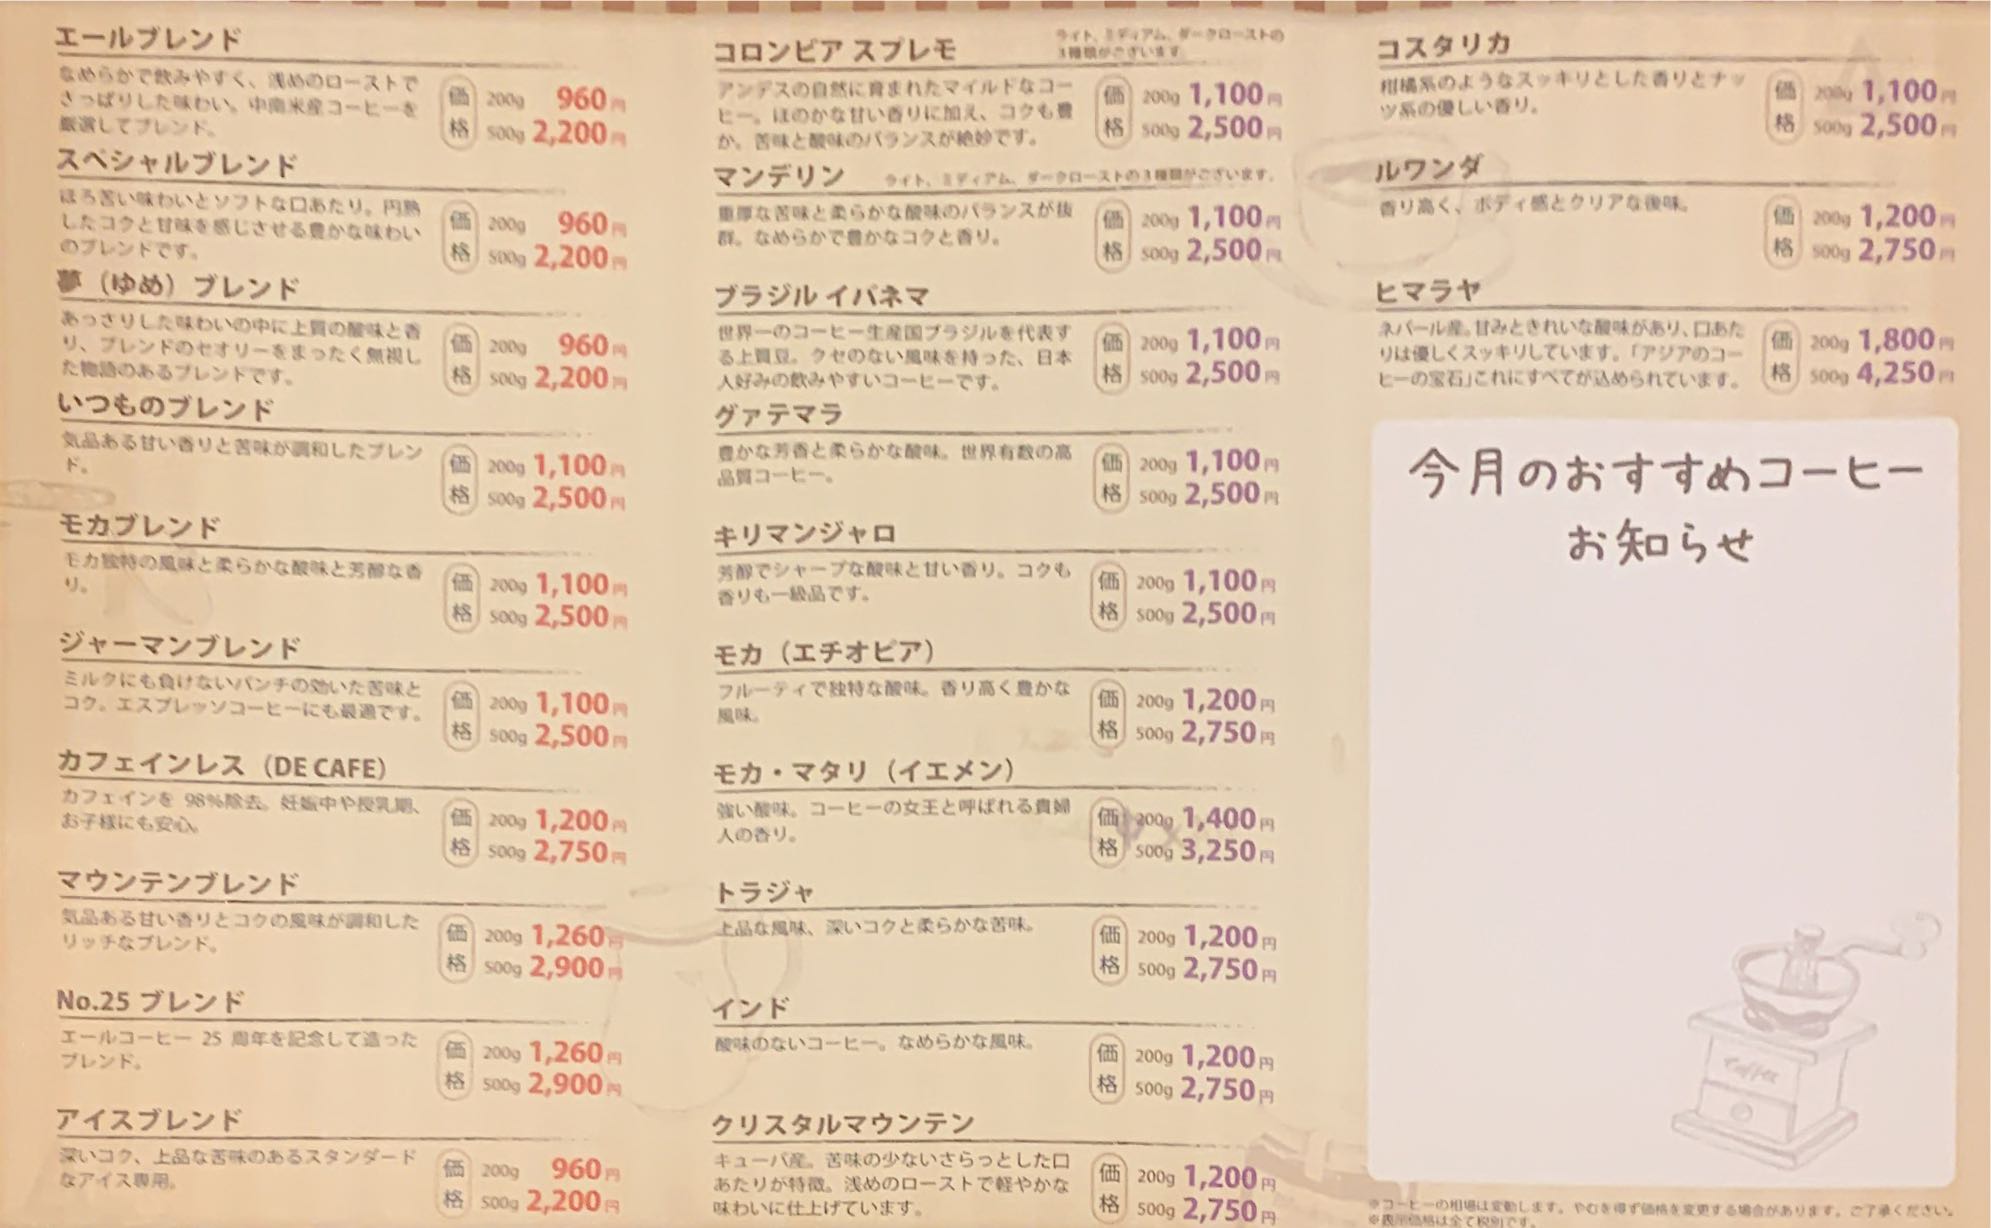 エールブレンド
なめらかで飲みやすく、浅めのローストで
さっぱりした味わい。中南米産コーヒーを
厳選してブレンド。
価格 200g 960円
500g 2,200円
スペシャルブレンド
ほろ苦い味わいとソフトな口あたり。円熟
したコクと甘味を感じさせる豊かな味わい
のブレンドです。
価格 200g 960円
500g 2,200円
夢（ゆめ）ブレンド
あっさりした味わいの中に上質の酸味と香
り、ブレンドのセオリーをまったく無視し
た物語のあるブレンドです。
価格 200g 960円
500g 2,200円
いつものブレンド
気品ある甘い香りと苦味が調和したブレン
ド。
価格 200g 1,100円
500g 2,500円
モカブレンド
モカ独特の風味と柔らかな酸味と芳醇な香
り。
価格 200g 1,100円
500g 2,500円
ジャーマンブレンド
ミルクにも負けないパンチの効いた苦味と
コク。エスプレッソコーヒーにも最適です。
価格 200g 1,100円
500g 2,500円
カフェインレス（DE CAFE）
カフェインを 98%除去。妊娠中や授乳期、
お子様にも安心。
価格 200g 1,200円
500g 2,750円
マウンテンブレンド
気品ある甘い香りとコクの風味が調和した
リッチなブレンド。
価格 200g 1,260円
500g 2,900円
No.25 ブレンド
エールコーヒー 25 周年を記念して造った
ブレンド。
価格 200g 1,260円
500g 2,900円
アイスブレンド
深いコク、上品な苦味のあるスタンダード
なアイス専用。
価格 200g 960円
500g 2,200円
コロンビア スプレモ
ライト、ミディアム、ダークローストの
3種類がございます。
アンデスの自然に育まれたマイルドなコー
ヒー。ほのかな甘い香りに加え、コクも豊
か。苦味と酸味のバランスが絶妙です。
価格 200g 1,100円
500g 2,500円
マンデリン ライト、ミディアム、ダークローストの3種類がございます。
重厚な苦味と柔らかな酸味のバランスが抜
群。なめらかで豊かなコクと香り。
価格 200g 1,100円
500g 2,500円
ブラジル イパネマ
世界一のコーヒー生産国ブラジルを代表す
る上質豆。クセのない風味を持った、日本
人好みの飲みやすいコーヒーです。
価格 200g 1,100円
500g 2,500円
グァテマラ
豊かな芳香と柔らかな酸味。世界有数の高
品質コーヒー。
価格 200g 1,100円
500g 2,500円
キリマンジャロ
芳醇でシャープな酸味と甘い香り。コクも
香りも一級品です。
価格 200g 1,100円
500g 2,500円
モカ（エチオピア）
フルーティで独特な酸味。香り高く豊かな
風味。
価格 200g 1,200円
500g 2,750円
モカ・マタリ（イエメン）
強い酸味。コーヒーの女王と呼ばれる貴婦
人の香り。
価格 200g 1,400円
500g 3,250円
トラジャ
上品な風味、深いコクと柔らかな苦味。
価格 200g 1,200円
500g 2,750円
インド
酸味のないコーヒー。なめらかな風味。
価格 200g 1,200円
500g 2,750円
クリスタルマウンテン
キューバ産。苦味の少ないさらっとした口
あたりが特徴。浅めのローストで軽やかな
味わいに仕上げています。
価格 200g 1,200円
500g 2,750円
コスタリカ
柑橘系のようなスッキリとした香りとナッ
ツ系の優しい香り。
価格 200g 1,100円
500g 2,500円
ルワンダ
香り高く、ボディ感とクリアな後味。
価格 200g 1,200円
500g 2,750円
ヒマラヤ
ネパール産。甘みときれいな酸味があり、口あた
りは優しくスッキリしています。「アジアのコー
ヒーの宝石」これにすべてが込められています。
価格 200g 1,800円
500g 4,250円
今月のおすすめコーヒー
お知らせ
Coffee
※コーヒーの相場は変動します。やむを得ず価格を変更する場合があります。ご了承ください。
※表示価格は全て税別です。